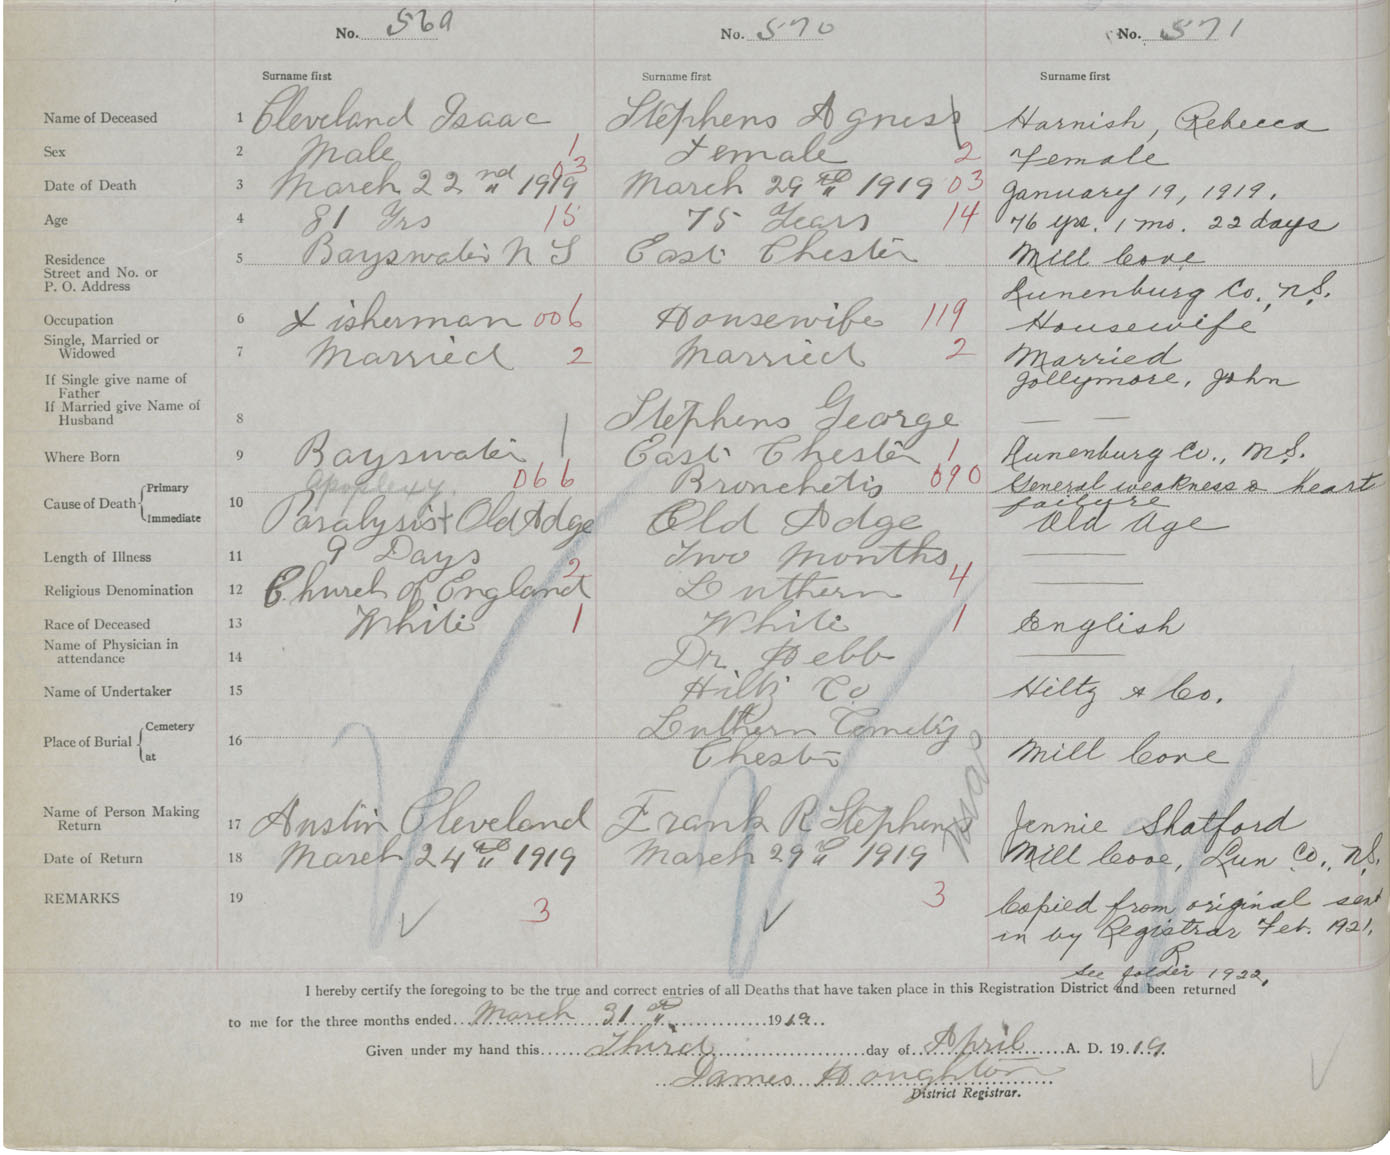 No. 569 No. 570 No. 571
Surname first Surname first Surname first
Name of Deceased 1 Cleveland Isaac Stephens Agness Harnish, Rebecca
Sex 2 Male 1 Female 2 Female
Date of Death 3 March 22nd 1919 03 March 29th 1919 03 January 19, 1919.
Age 4 81 Yrs 15 75 Years 14 76 yrs. 1 mo. 22 days
Residence 5 Bayswater N S East Chester Mill Cove
Street and No. or
P. O. Address Lunenburg Co., N.S.
Occupation 6 Fisherman 006 Housewife 119 Housewife
Single, Married or
Widowed 7 Married 2 Married 2 Married
If Single give name of
Father Jollymore, John
If Married give Name of
Husband 8 Stephens George —
Where Born 9 Bayswater 1 East Chester 1 Lunenburg Co., N.S.
Cause of Death { Primary Apoplexy. 066 Bronchetis 090 General weakness & heart failure
Immediate 10 Paralysis + Old Adge Old Adge Old Age
Length of Illness 11 9 Days Two Months —
Religious Denomination 12 Church of England 2 Luthern 4 —
Race of Deceased 13 White 1 White 1 English
Name of Physician in
attendance 14 Dr. Hebb —
Name of Undertaker 15 Hiltz Co Hiltz & Co.
Place of Burial { Cemetery Luthern Cemetry
at 16 Chester Mill Cove
Name of Person Making
Return 17 Austin Cleveland Frank R Stephens Jennie Shatford
Date of Return 18 March 24th 1919 March 29th 1919 Mill Cove, Lun Co., N.S.
REMARKS 19 3 3 Copied from original sent
in by Registrar Feb. 1921.
R
See folder 1922.
I hereby certify the foregoing to be the true and correct entries of all Deaths that have taken place in this Registration District and been returned
to me for the three months ended March 31st 1919
Given under my hand this Third day of April A. D. 1919.
James Houghton
District Registrar.